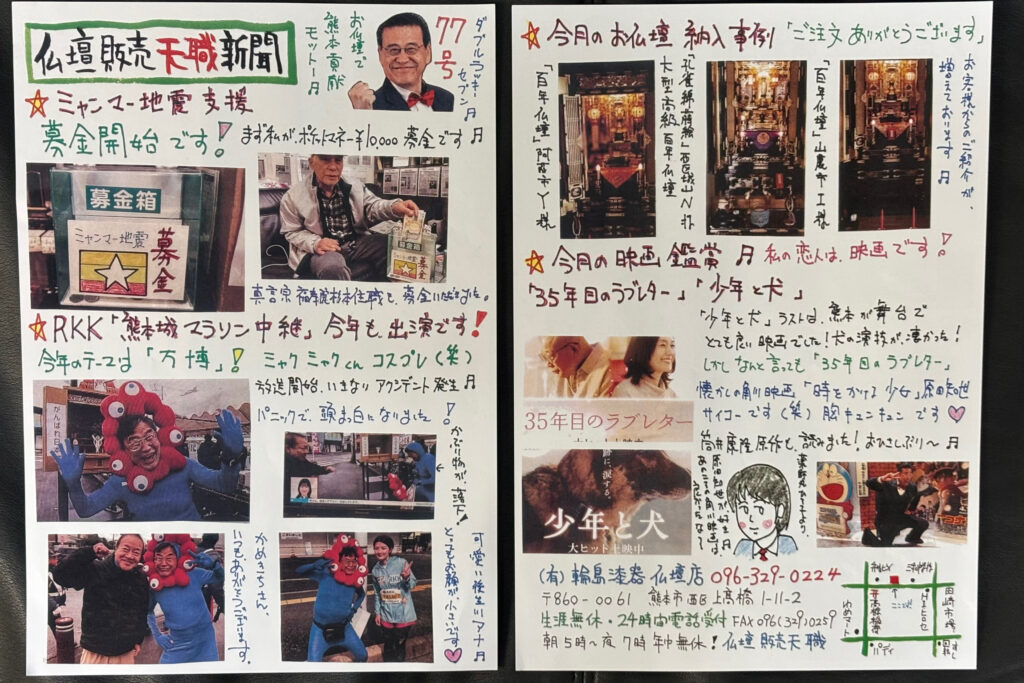 仏壇販売天職新聞
お仏壇で
熊本貢献
モットー♬
77号
ダブルラッキー
セブン♬
☆ミャンマー地震支援
募金開始です!
まず私が、ポケットマネー¥10,000募金です♬
募金箱
ミャンマー地震
募金
募金箱
ミャンマー地震
募金
☆RKK「熊本城マラソン中継」今年も出演です!
今年のテーマは「万博」!
ミャクミャクくん コスプレ(笑)
放送開始、いきなりアクシデント発生♬
パニックで、頭まっ白になりました!
かぶり物が、落下!
がんばれ
かめきちさん、
いつもありがとうございます。
可愛い後生川アナ♬
とってもお顔が小さいです
☆今月のお仏壇 納入事例「ご注文ありがとうございます」
「百年仏壇」阿蘇市Y様
孔雀錦蒔絵 西区城山N様
大型高級百年仏壇
「百年仏壇」山鹿市I様
お客様からのご紹介が、
増えております♬
☆今月の映画鑑賞♬ 私の恋人は、映画です!
「35年目のラブレター」「少年と犬」
「少年と犬」ラストは、熊本が舞台で
とても良い映画でした!犬の演技が、凄かった!
しかしなんと言っても「35年目のラブレター」
懐かしの角川映画「時をかける少女」原田知世
サイコーです(笑)胸キュンキュンです♡
筒井康隆原作も、読みました!おひさしぶり〜♬
35年目のラブレター
少年と犬
大ヒット上映中
原田知世が好き♬
あのころの角川映画は、
(有)輪島漆器仏壇店 096-329-0224
〒860-0061 熊本市西区上高橋1-11-2
生涯無休・24時間電話受付 FAX096(329)0259
朝5時〜夜7時 年中無休!仏壇販売天職